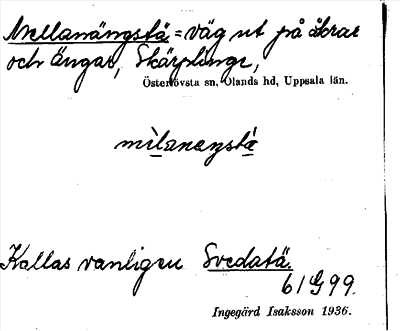 Mellanängstä = väg ut på åkrar
och ängar, Skärplinge,
Österlövsta sn, Olands hd, Uppsala län.
mìlanangstä
Kallas vanligen Svedatä.
61 G 99.
Ingegärd Isaksson 1936.